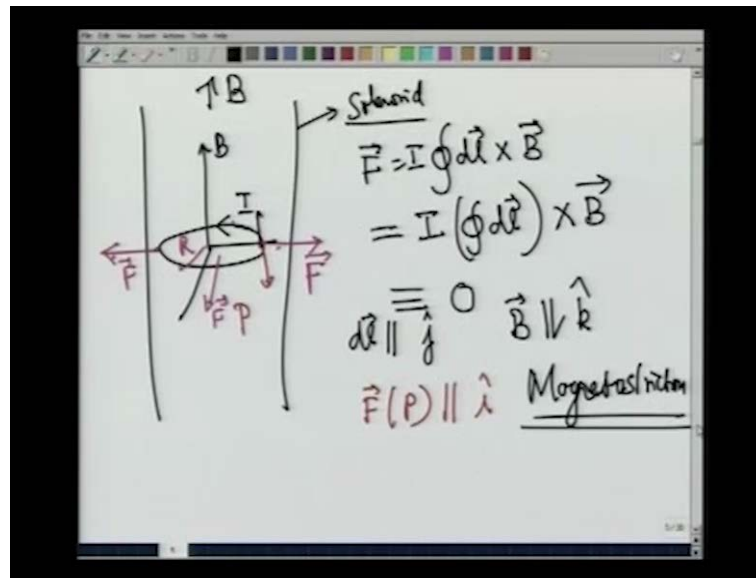 File Edit View Insert Actions Tools Help
↑B
Solenoid
B
I
R
F⃗
F⃗
F⃗ P
F⃗ = I ∮ dl⃗ × B⃗
= I (∮ dl⃗) × B⃗
≡ 0
dl⃗ || ĵ B⃗ || k̂
F⃗(P) || î Magnetostriction